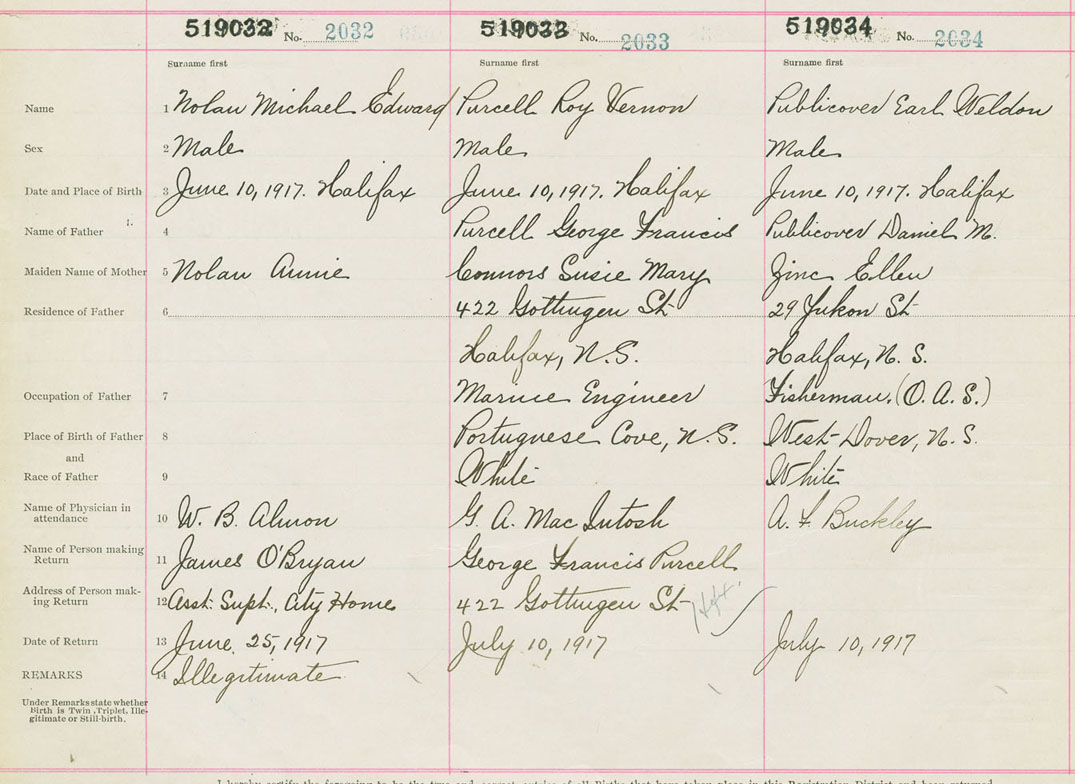 519032 No. 2032 519033 No. 2033 519034 No. 2034
Surname first Surname first Surname first
Name 1 Nolan Michael Edward Purcell Roy Vernon Publicover Earl Weldon
Sex 2 Male Male Male
Date and Place of Birth 3 June 10, 1917. Halifax June 10, 1917. Halifax June 10, 1917. Halifax
Name of Father 4 Purcell George Francis Publicover Daniel M.
Maiden Name of Mother 5 Nolan Annie Connors Susie Mary Zinc Ellen
Residence of Father 6 422 Gottingen St 29 Yukon St
Halifax, N.S. Halifax, N. S.
Occupation of Father 7 Marine Engineer Fisherman. (O. A. S.)
Place of Birth of Father 8 Portuguese Cove, N.S. West Dover, N. S.
and
Race of Father 9 White White
Name of Physician in
attendance 10 W. B. Almon G. A. MacIntosh A. F. Buckley
Name of Person making
Return 11 James O'Bryan George Francis Purcell
Address of Person mak-
ing Return 12 Asst. Supt., City Home 422 Gottingen St Hfx
Date of Return 13 June 25, 1917 July 10, 1917 July 10, 1917
REMARKS 14 Illegitimate
Under Remarks state whether
Birth is Twin, Triplet, Ille-
gitimate or Still-birth.
I hereby certify the foregoing to be the true and correct entries of all Births that have taken place in this Registration District and been returned